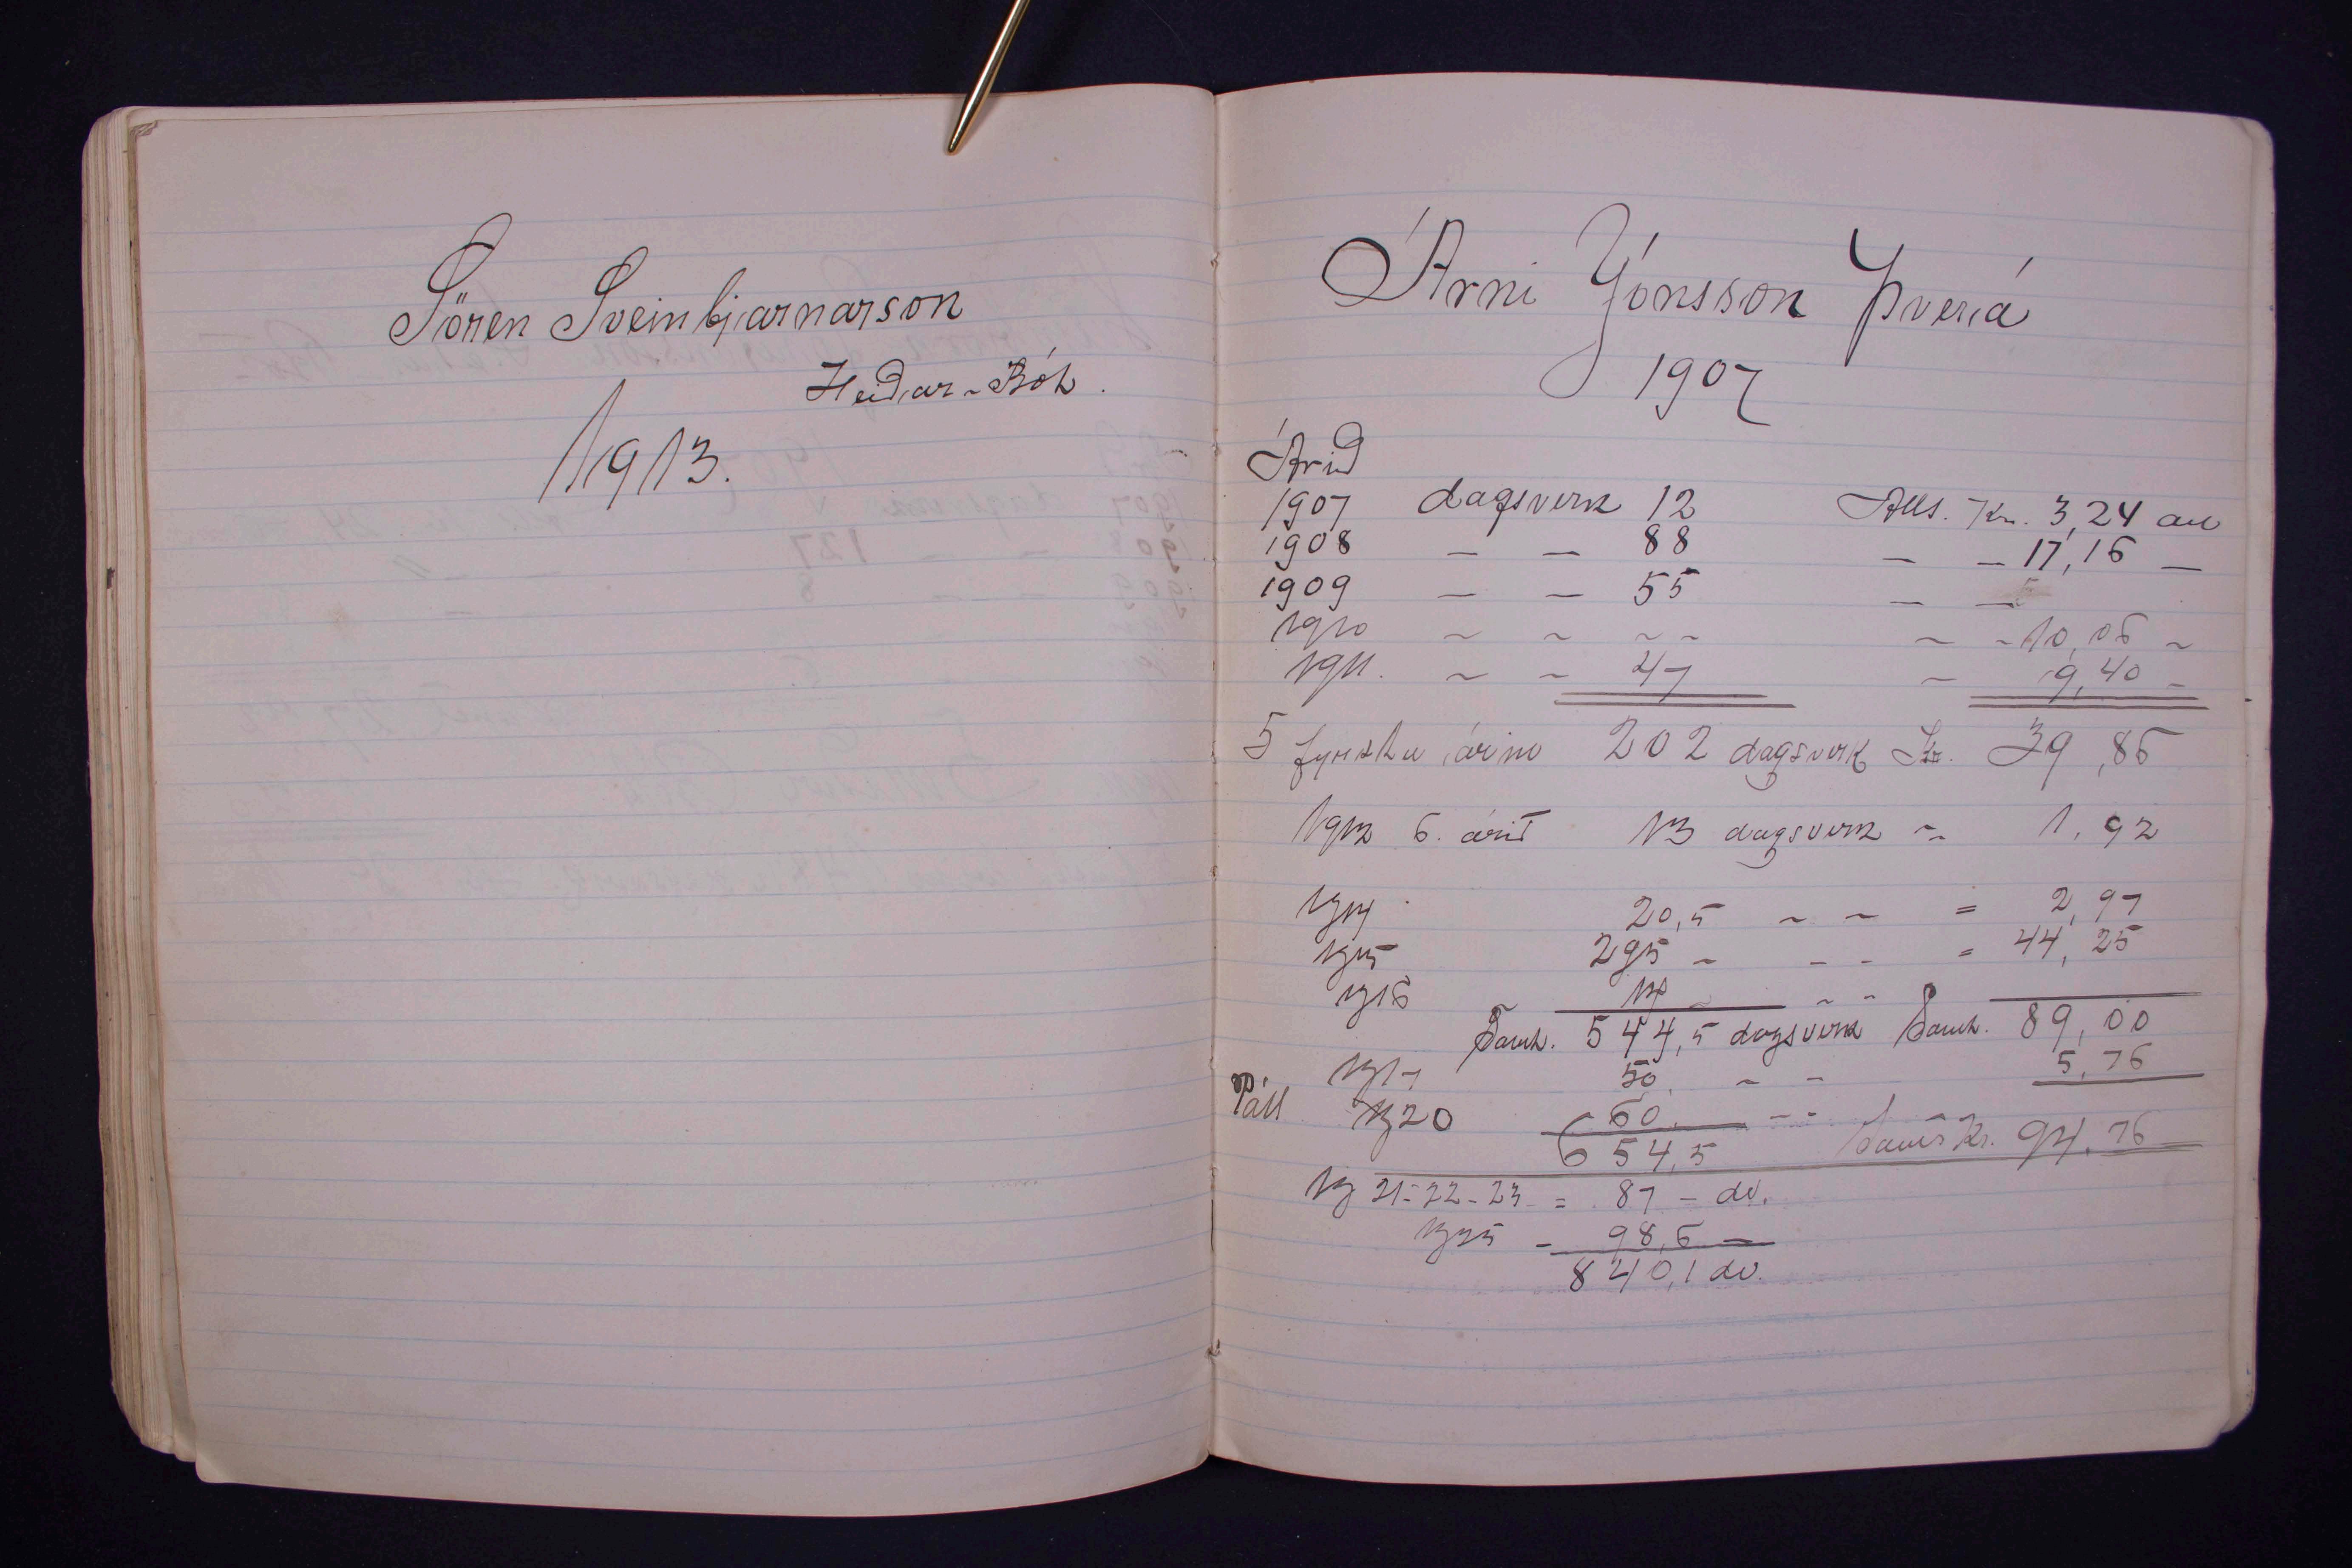 Sören Sveinbjarnarson
Heiðar-Bót.
1913.
Árni Jónsson Þverá
1907
Árið
1907 dagsverk 12 Alls. Kr. 3,24 au
1908 — — 88 — — 17,16 —
1909 — — 55 — —
1910 ~ ~ ~ ~ ~ - 10,06 ~
1911. ~ ~ 47 ~ 9,40 -
5 fyrstu árin 202 dagsverk Kr. 39,86
1912 6. árið 13 dagsverk ~ 1,92
1914 20,5 ~ ~ = 2,97
1915 295 ~ - - = 44,25
1916 14 ~ - -
Samt. 544,5 dagsverk Samt. 89,00
1917 50. ~ - 5,76
Páll 1920 60. - - -
654,5 Samt Kr. 94,76
19 21-22-23 = 87 - dv.
1925 - 98,6 —
840,1 dv.